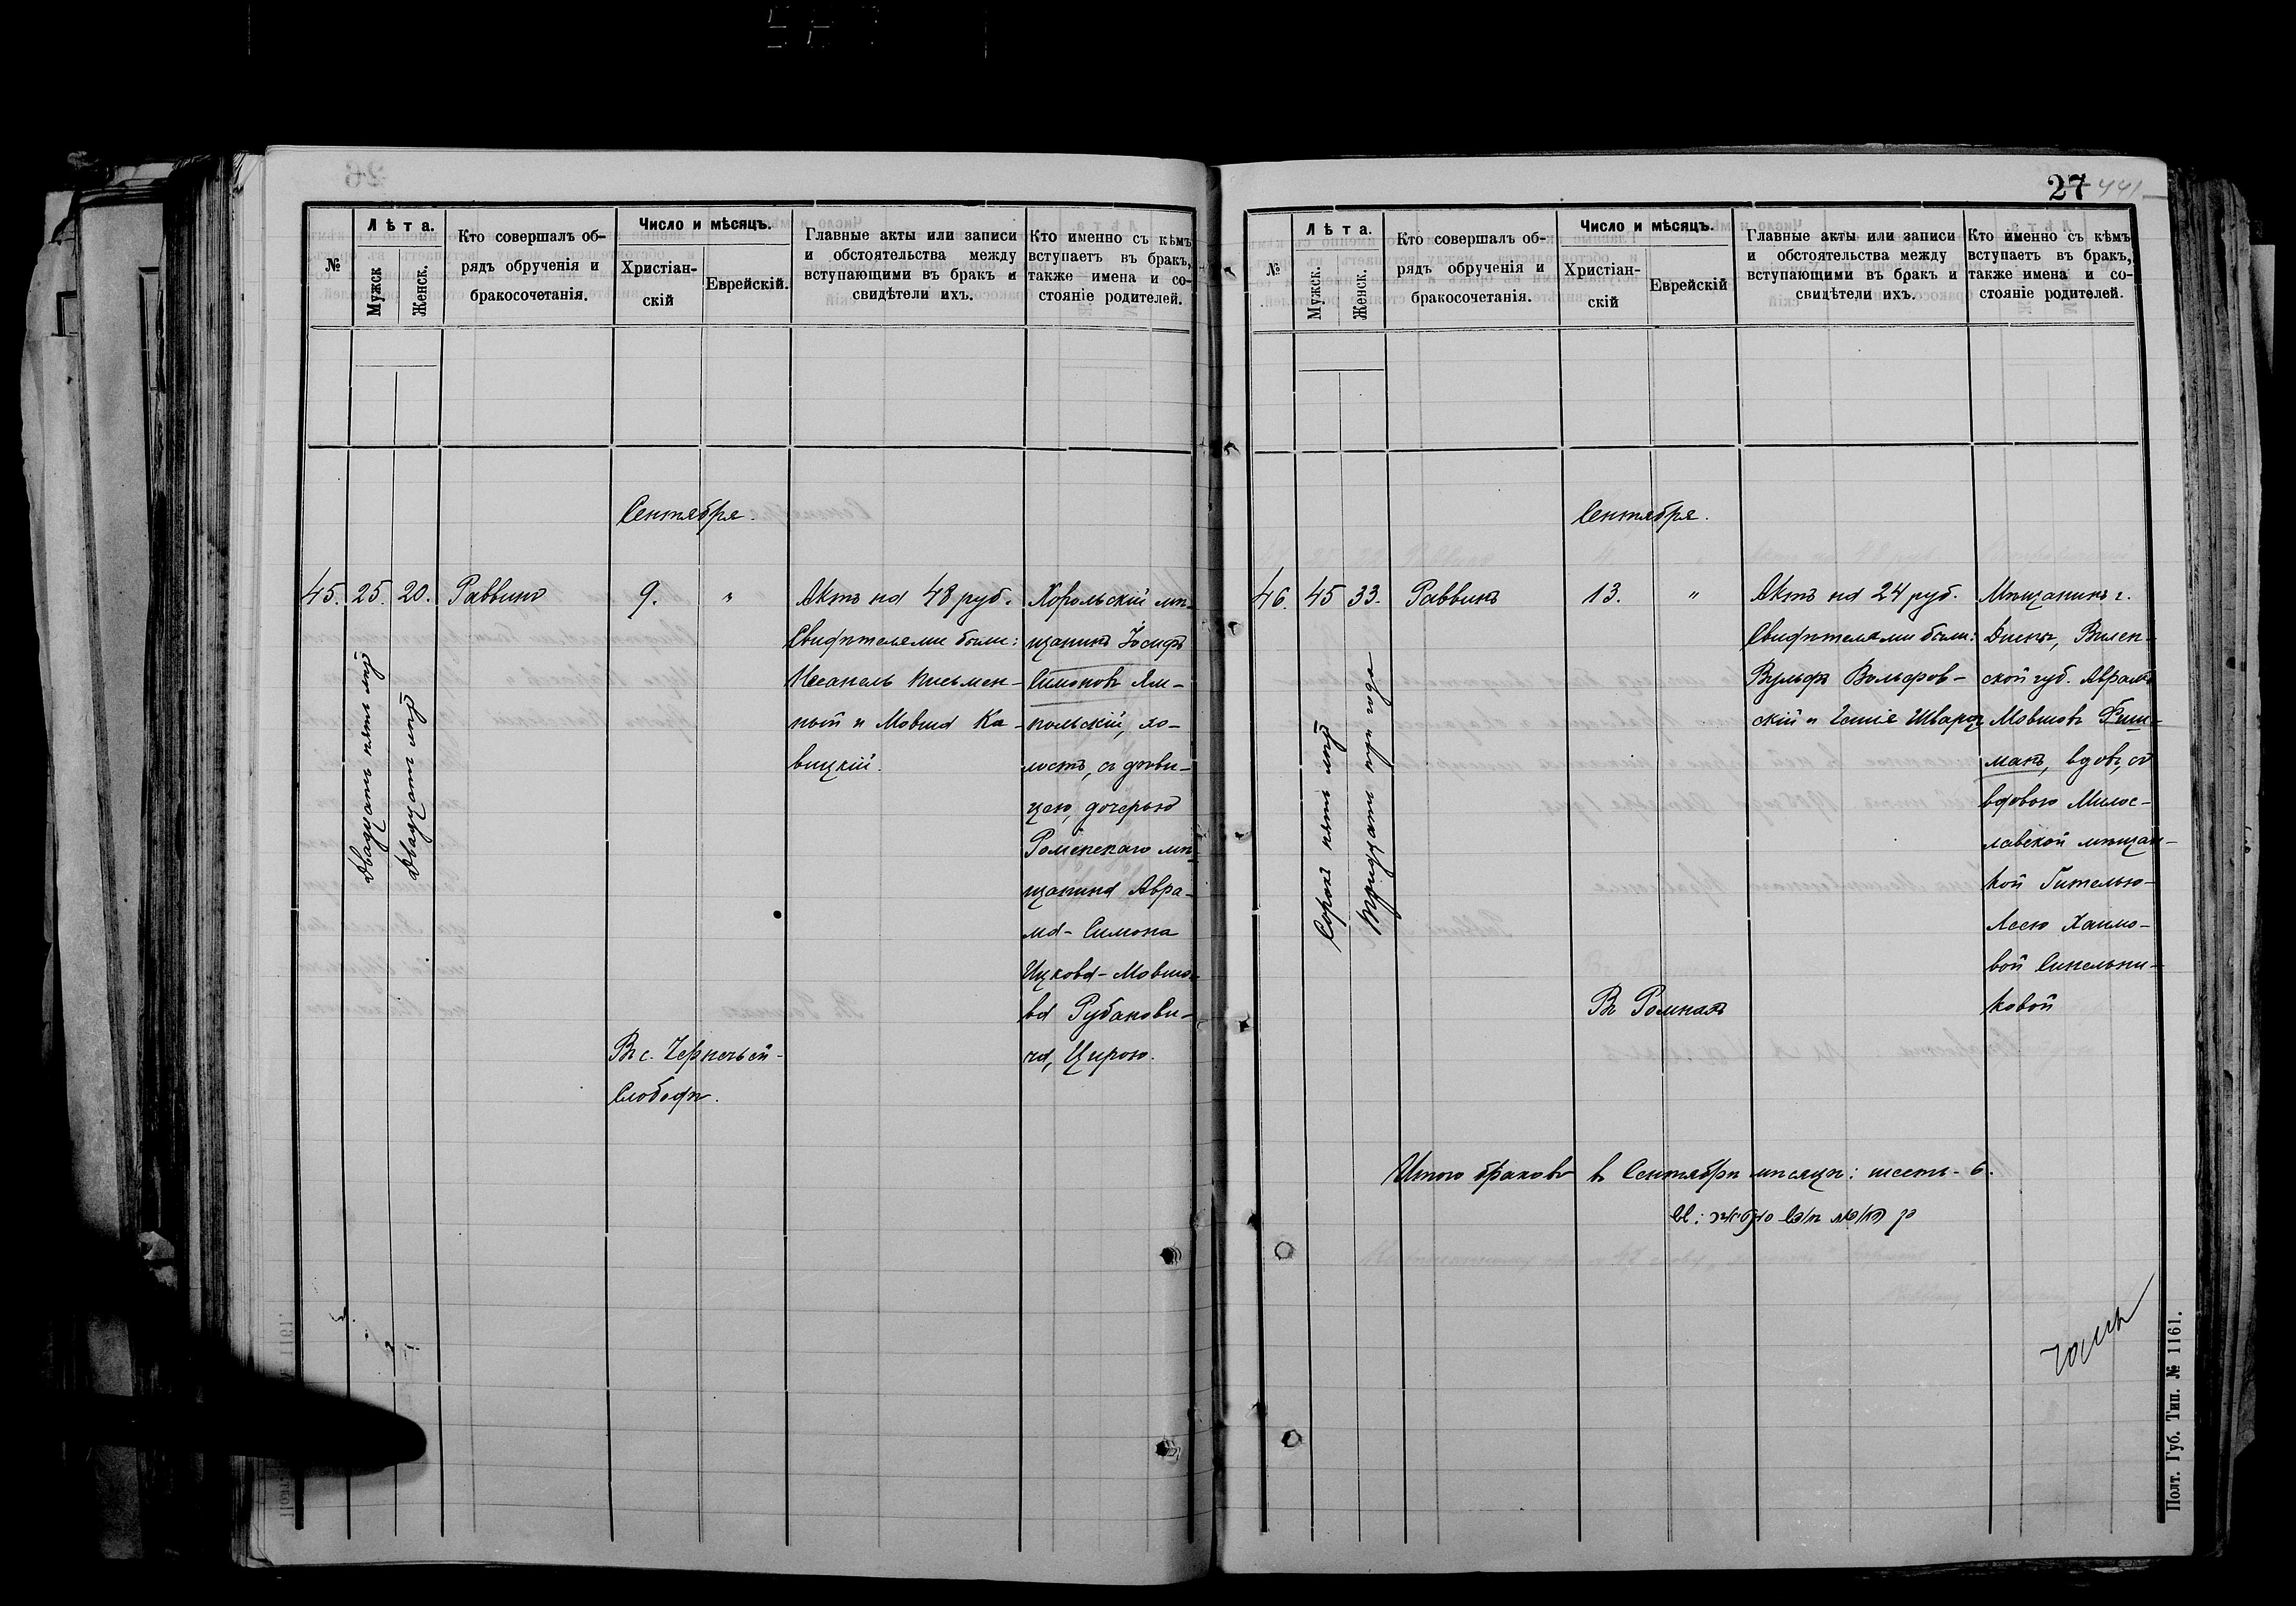 №
Лѣта.
Мужск
Женск.
Кто совершалъ об-
рядъ обрученія и
бракосочетанія.
Число и мѣсяцъ.
Христіан-
скій
Еврейскій.
Главные акты или записи
и обстоятельства между
вступающими въ бракъ и
свидѣтели ихъ.
Кто именно съ кѣмъ
вступаетъ въ бракъ,
также имена и со-
стояніе родителей.
Сентября.
45.
25.
20.
Двадцать пять лѣтъ
Двадцать лѣтъ
Раввинъ
9.
"
Въ с.
Слободѣ.
Актъ на 48 руб.
Свидѣтелями были:
Письмен-
ный и Мовша Ка-
вицкій.
Хорольскій мѣ-
щанинъ Іосифъ
Симоновъ Ям-
польскій, хо-
лостъ, съ дѣви-
цею, дочерью
Роменскаго мѣ-
щанина Авра-
ма-Симона
Ицкова-Мовшо-
ва Рубанови-
ча, Цирою.
27
441
№
Лѣта.
Мужск.
Женск.
Кто совершалъ об-
рядъ обрученія и
бракосочетанія.
Число и мѣсяцъ.
Христіан-
скій
Еврейскій
Главные акты или записи
и обстоятельства между
вступающими въ бракъ и
свидѣтели ихъ.
Кто именно съ кѣмъ
вступаетъ въ бракъ,
также имена и со-
стояніе родителей.
Сентября.
46.
45
33.
Сорокъ пять лѣтъ
Тридцать три года
Раввинъ
13.
"
Въ Ромнахъ
Актъ на 24 руб.
Свидѣтелями были:
Вульфъ Вольфов-
скій и Шварцъ
Мѣщанинъ г.
Дисны, Вилен-
ской губ. Абрамъ
Мовшовъ Фиш-
манъ, вдовъ, съ
вдовою Милос-
лавской мѣщан-
кой Гителью-
Лесею Хаимо-
вой Синельни-
ковой
Итого браковъ въ Сентябрѣ мѣсяцѣ: шесть - 6.
Полт. Губ. Тип. № 1161.